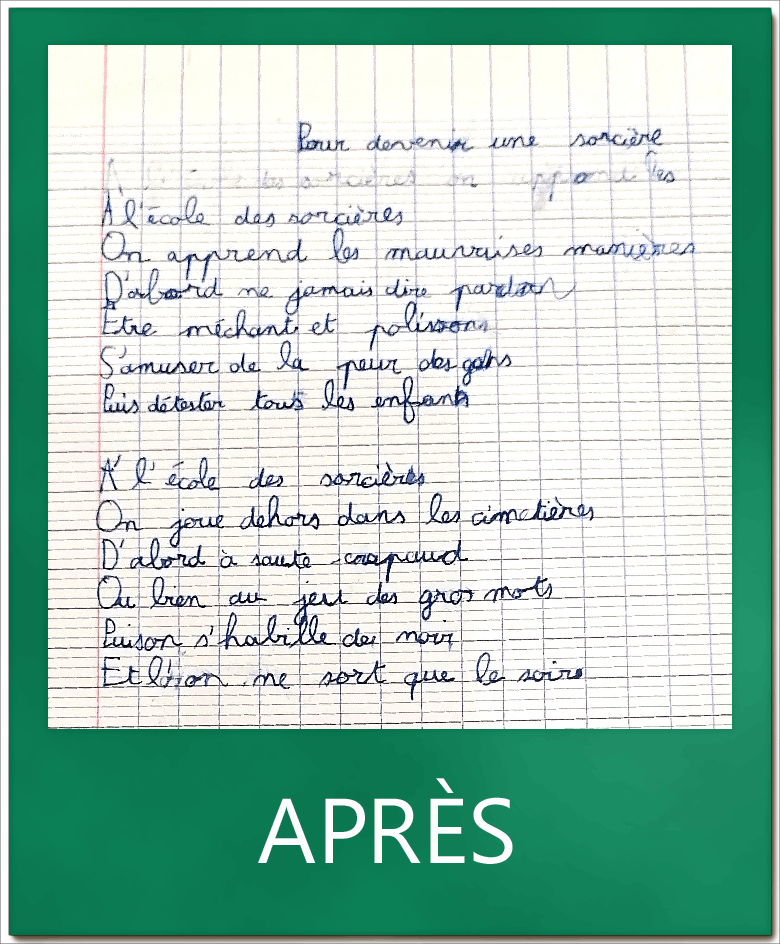 Pour devenir une sorcière
A des sorcières on apprend les
A l'école des sorcières
On apprend les mauvaises manières
D'abord ne jamais dire pardon
Etre méchant et polissons
S'amuser de la peur des gens
Puis détester tous les enfants
A l'école des sorcières
On joue dehors dans les cimetières
D'abord à saute crapaud
Ou bien au jeu des gros mots
Puis on s'habille de noir
Et l'on ne sort que le soir
APRÈS